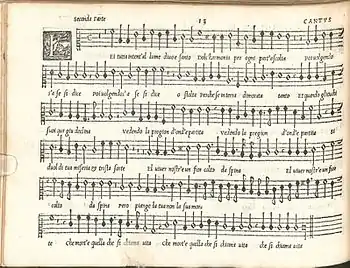 Seconda Parte 13 CANTVS
Et tutt'intent'al lume divo e santo Dols'harmonia per ogni part'ascolta poi volgendo
s'a se si dice poi volgendos'a se si dice o stolta perche se in terra dimorata tanto Et quando gl'occhi
suoi que giu declina vedendo la pregion d'ond'e partita vedendo la pregion d'ond'e partita si
duol di tua miseria et trista sorte El viver nostr'e un fior colto da spina El viver nostr'e un fior
colto da spina pero piango la tua non la sua morte
te che mort'e quella che si chiama vita che mort'e quella che si chiama vita che si chiama vita